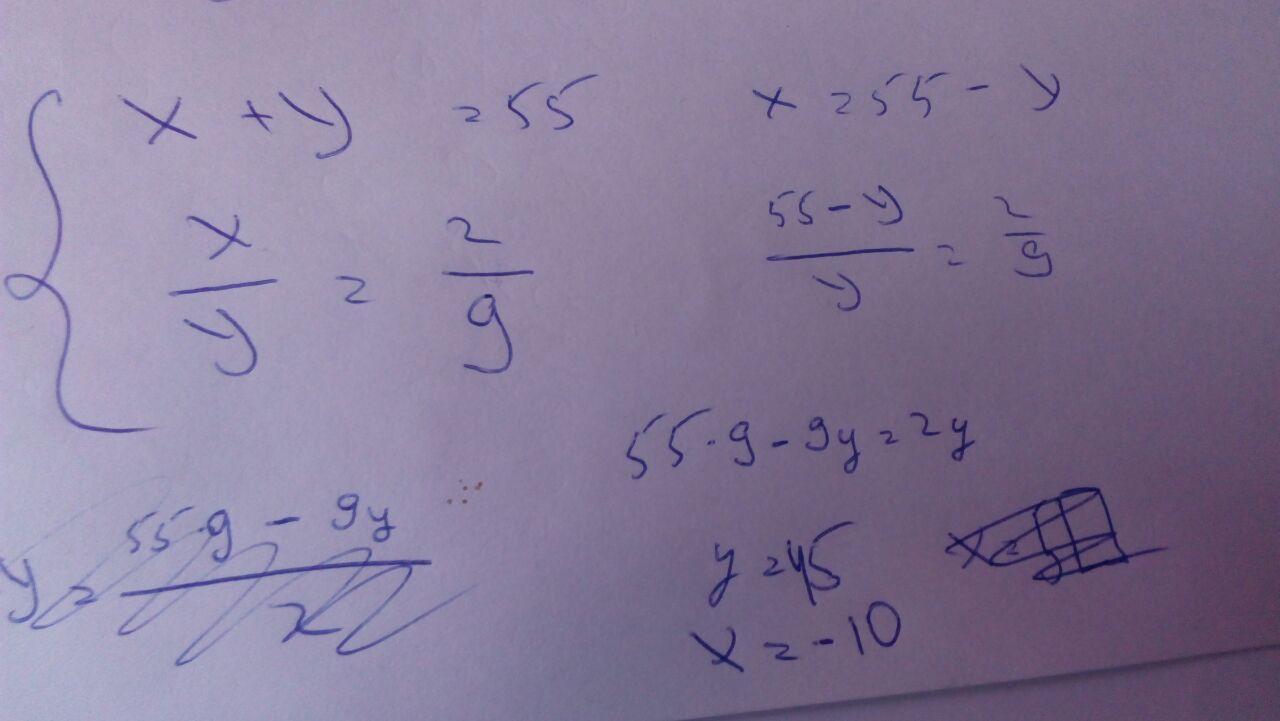 x + y = 55
x/y = 2/9
x = 55 - y
(55 - y)/y = 2/9
55·9 - 9y = 2y
y = 55·9 - 9y / 2
y = 45
x = -10